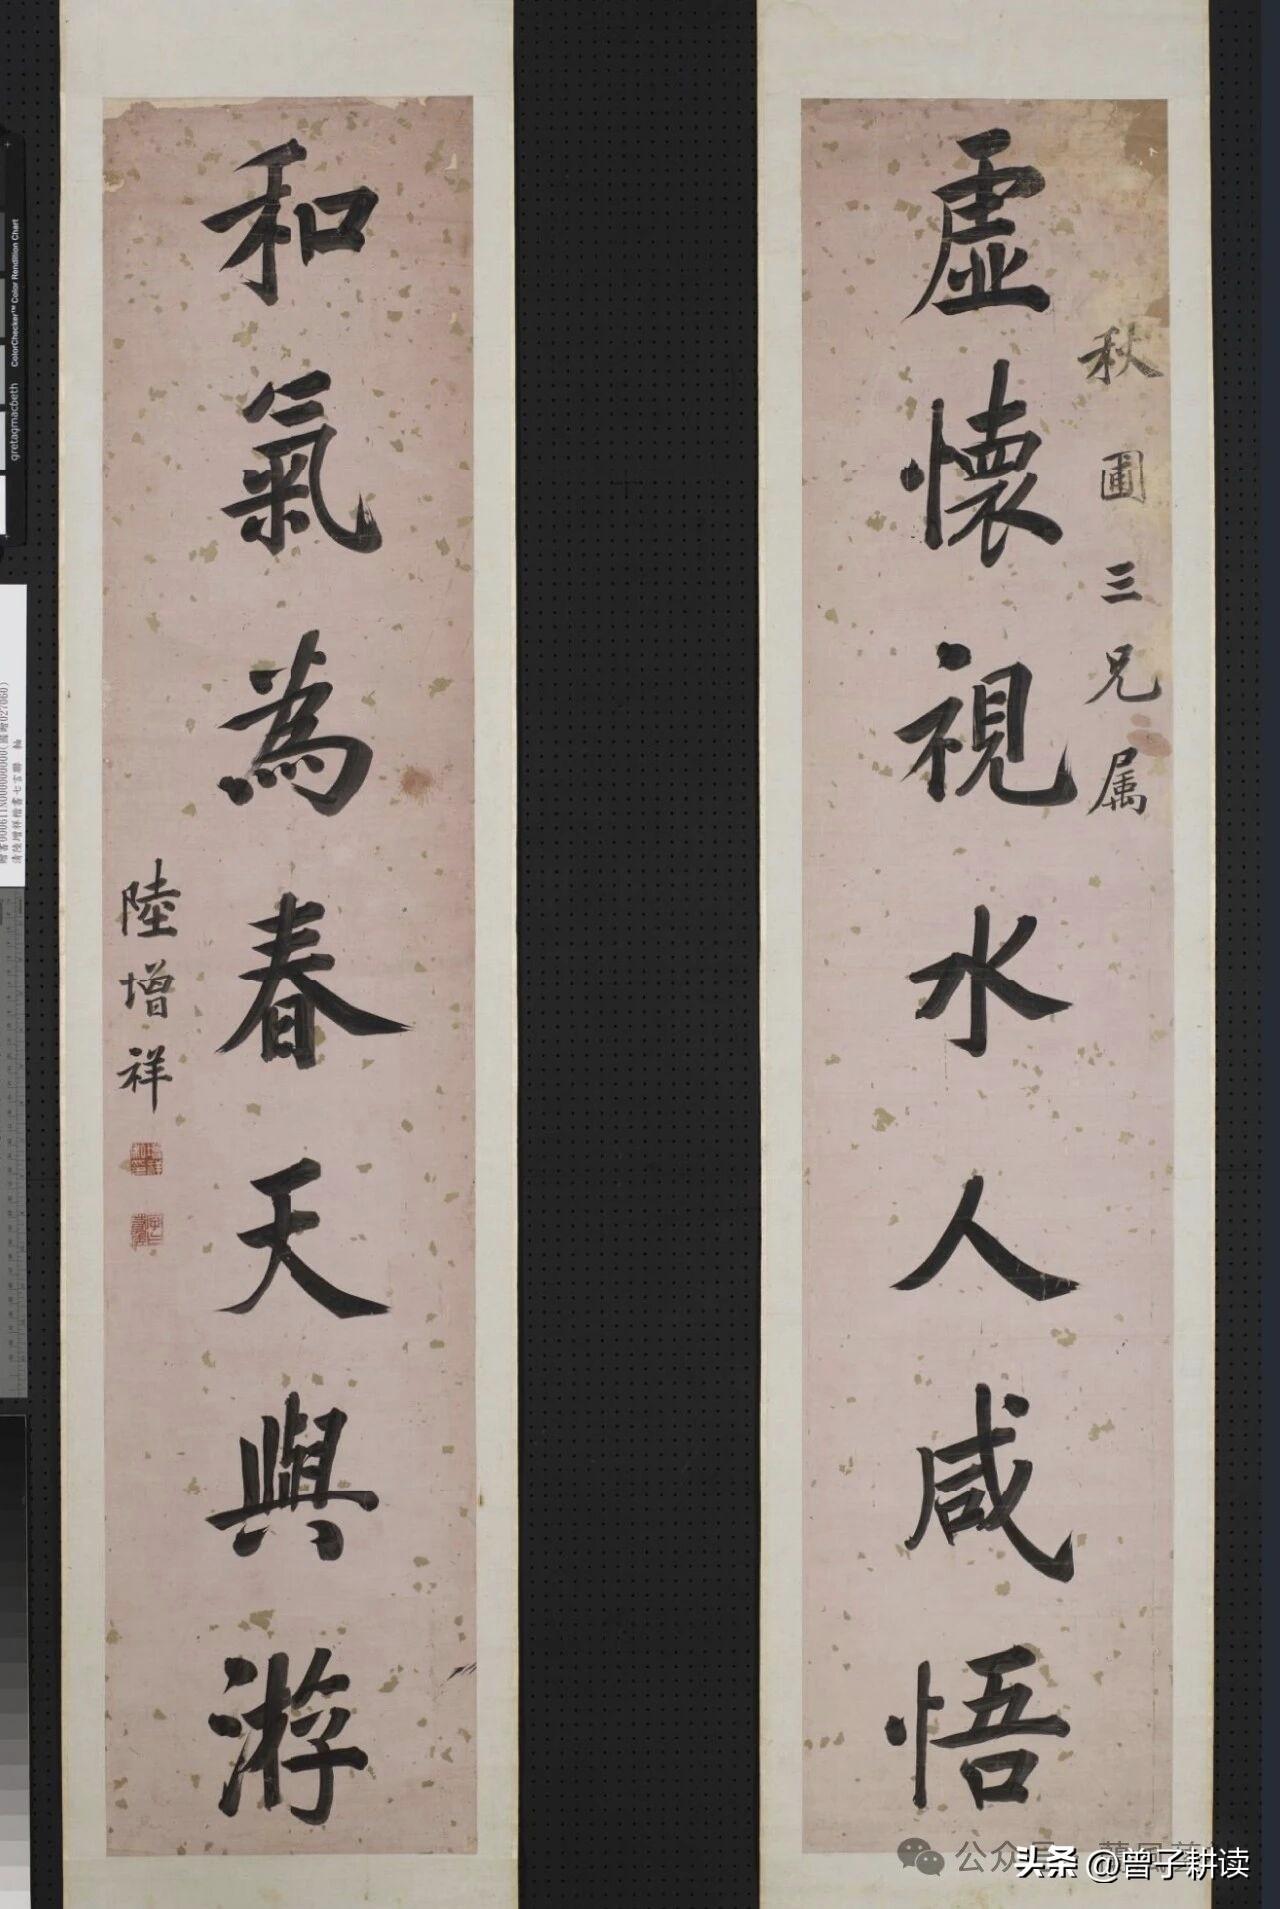 虛懷視水人咸悟
秋圃三兄属
和氣為春天與游
陸增祥
gretagmacbeth ColorChecker™ Color Rendition Chart
清陸增祥楷書七言聯 軸
公众号
头条 @曾子耕读